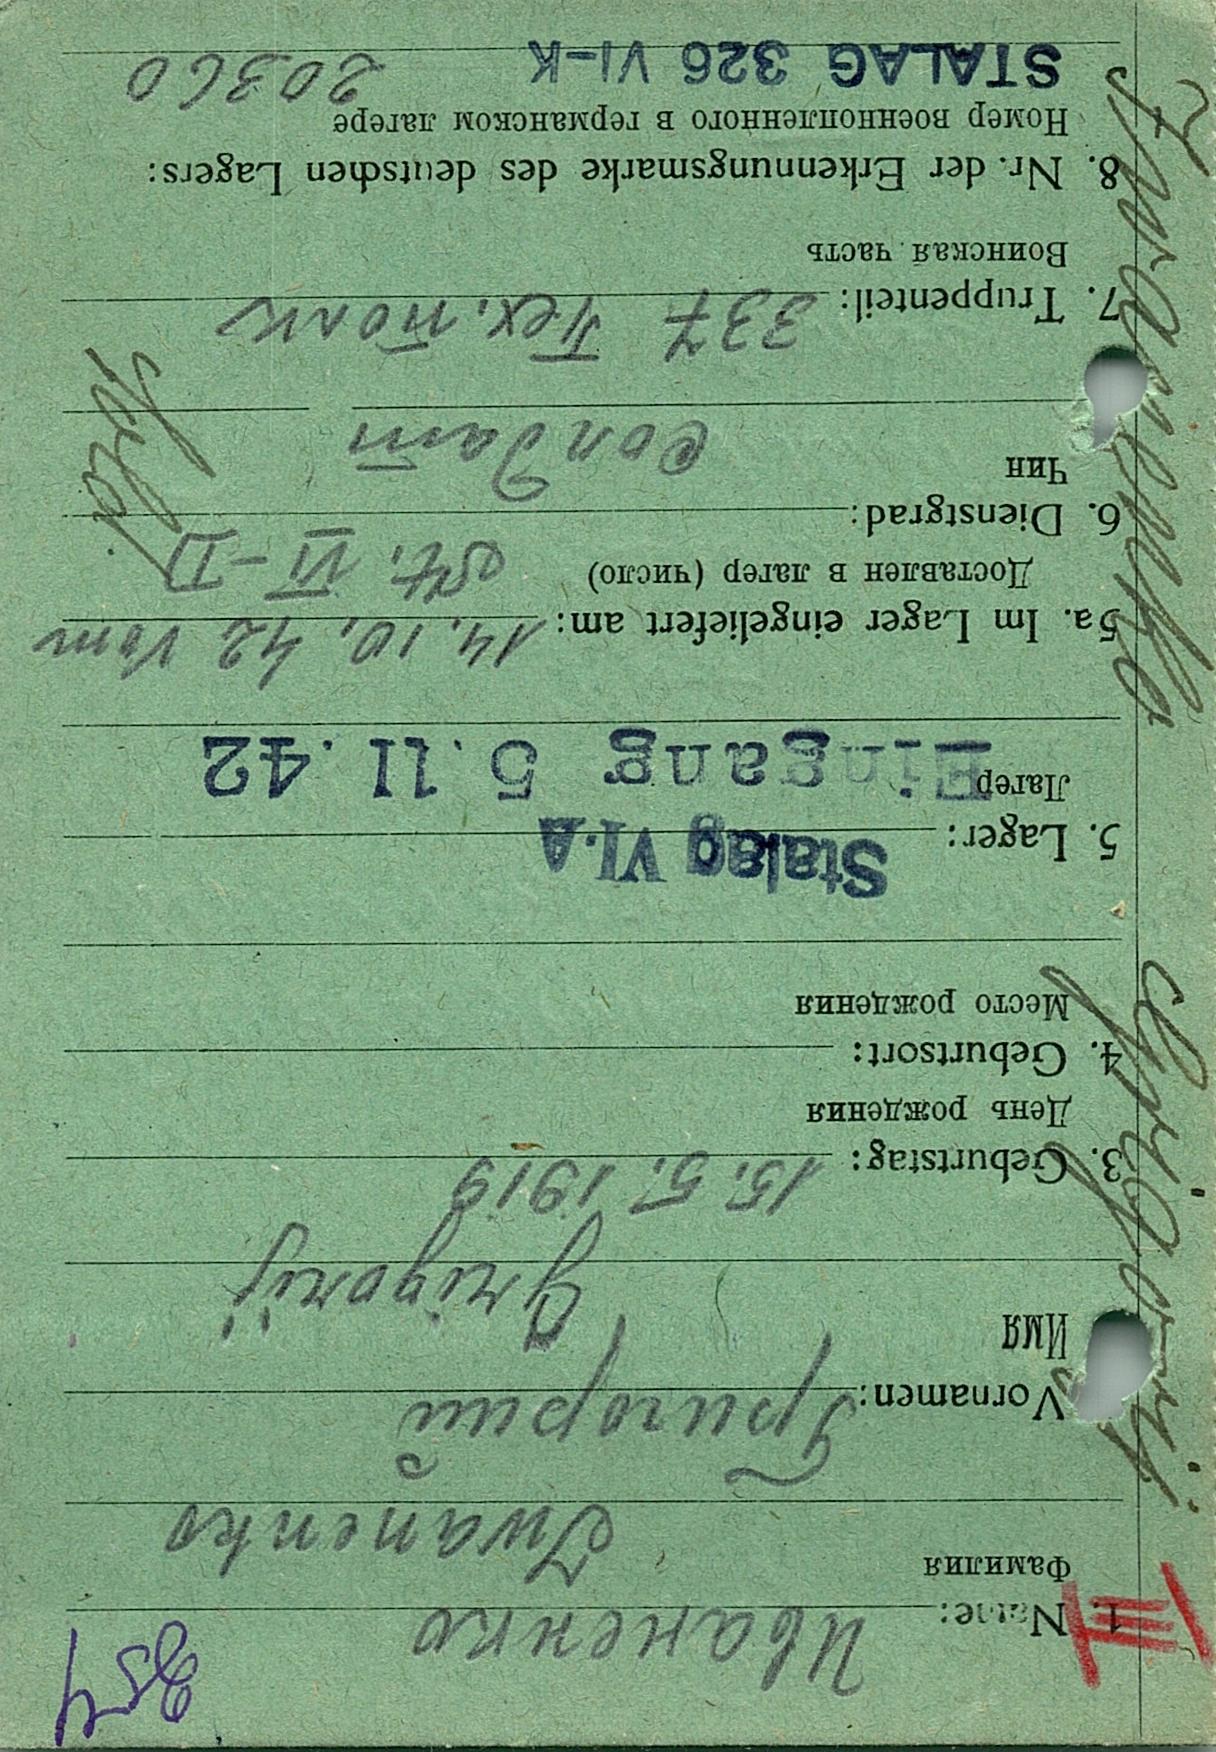 854
1. Name: Иваненко
Фамилия
Iwanenko
Vornamen: Григорий
Имя
Grigorij
3. Geburtstag: 15. 5. 1919
День рождения
4. Geburtsort:
Место рождения
Stalag VI.A
5. Lager:
Лагер
Eingang 5.11.42
5a. Im Lager eingeliefert am: 14. 10. 42 vom
Доставлен в лагер (число)
St. VI-D
6. Dienstgrad:
Чин
Солдат
Sold.
7. Truppenteil: 337 Тех. полк
Воинская часть
8. Nr. der Erkennungsmarke des deutschen Lagers:
Номер военнопленного в германском лагере
STALAG 326 VI-K 20360
Iwanenko Grigorij